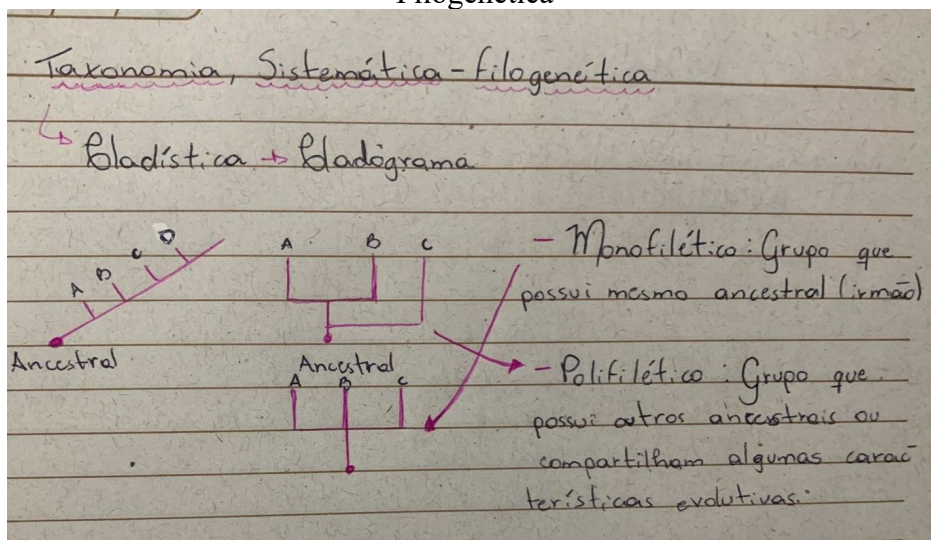 Filogenética
Taxonomia, Sistemática - filogeneítica
Cladística → Cladógrama
A B C D
Ancestral
A B C
Ancestral
A B C
- Monofilético: Grupo que
possui mesmo ancestral (irmão)
- Polifilético: Grupo que
possui outros ancestrais ou
compartilham algumas carac
terísticas evolutivas.